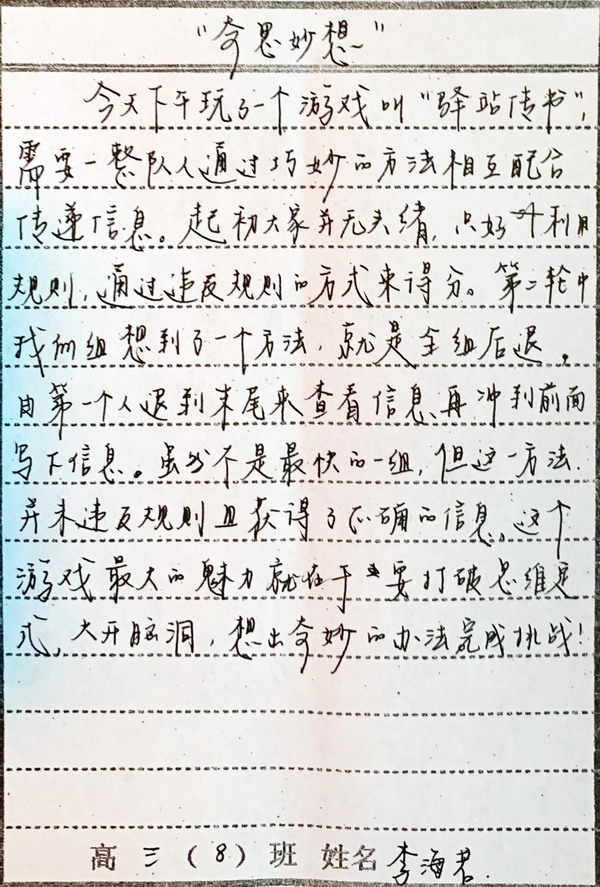 “奇思妙想”
今天下午玩了一个游戏叫“驿站传书”,
需要一整队人通过巧妙的方法相互配合
传递信息。起初大家并无头绪,只好利用
规则,通过违反规则的方式来得分。第二轮中
我们组想到了一个方法,就是全组后退,
由第一个人退到末尾来查看信息,再冲到前面
写下信息。虽然不是最快的一组,但这一方法
并未违反规则且获得了正确的信息。这个
游戏最大的魅力就在于要打破思维定
式,大开脑洞,想出奇妙的办法完成挑战!
高三(8)班 姓名 李海君